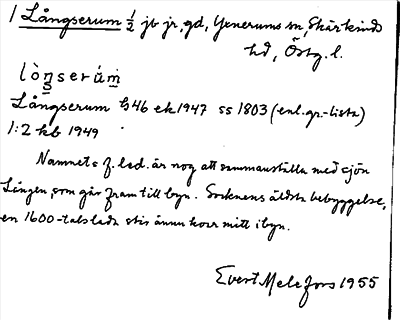 1 Långserum 1/2 jb jr, gd, Yxnerums sn, Skärkinds
hd, Östg. l.
lòŋserúm
Långserum G46 ek 1947 ss 1803 (enl. gr.-lista)
1:2 kb 1949
Namnets f. led. är nog att sammanställa med sjön
Lången, som går fram till byn. Socknens äldsta bebyggelse,
en 1600-talslada står ännu kvar mitt i byn.
Evert Melefors 1955